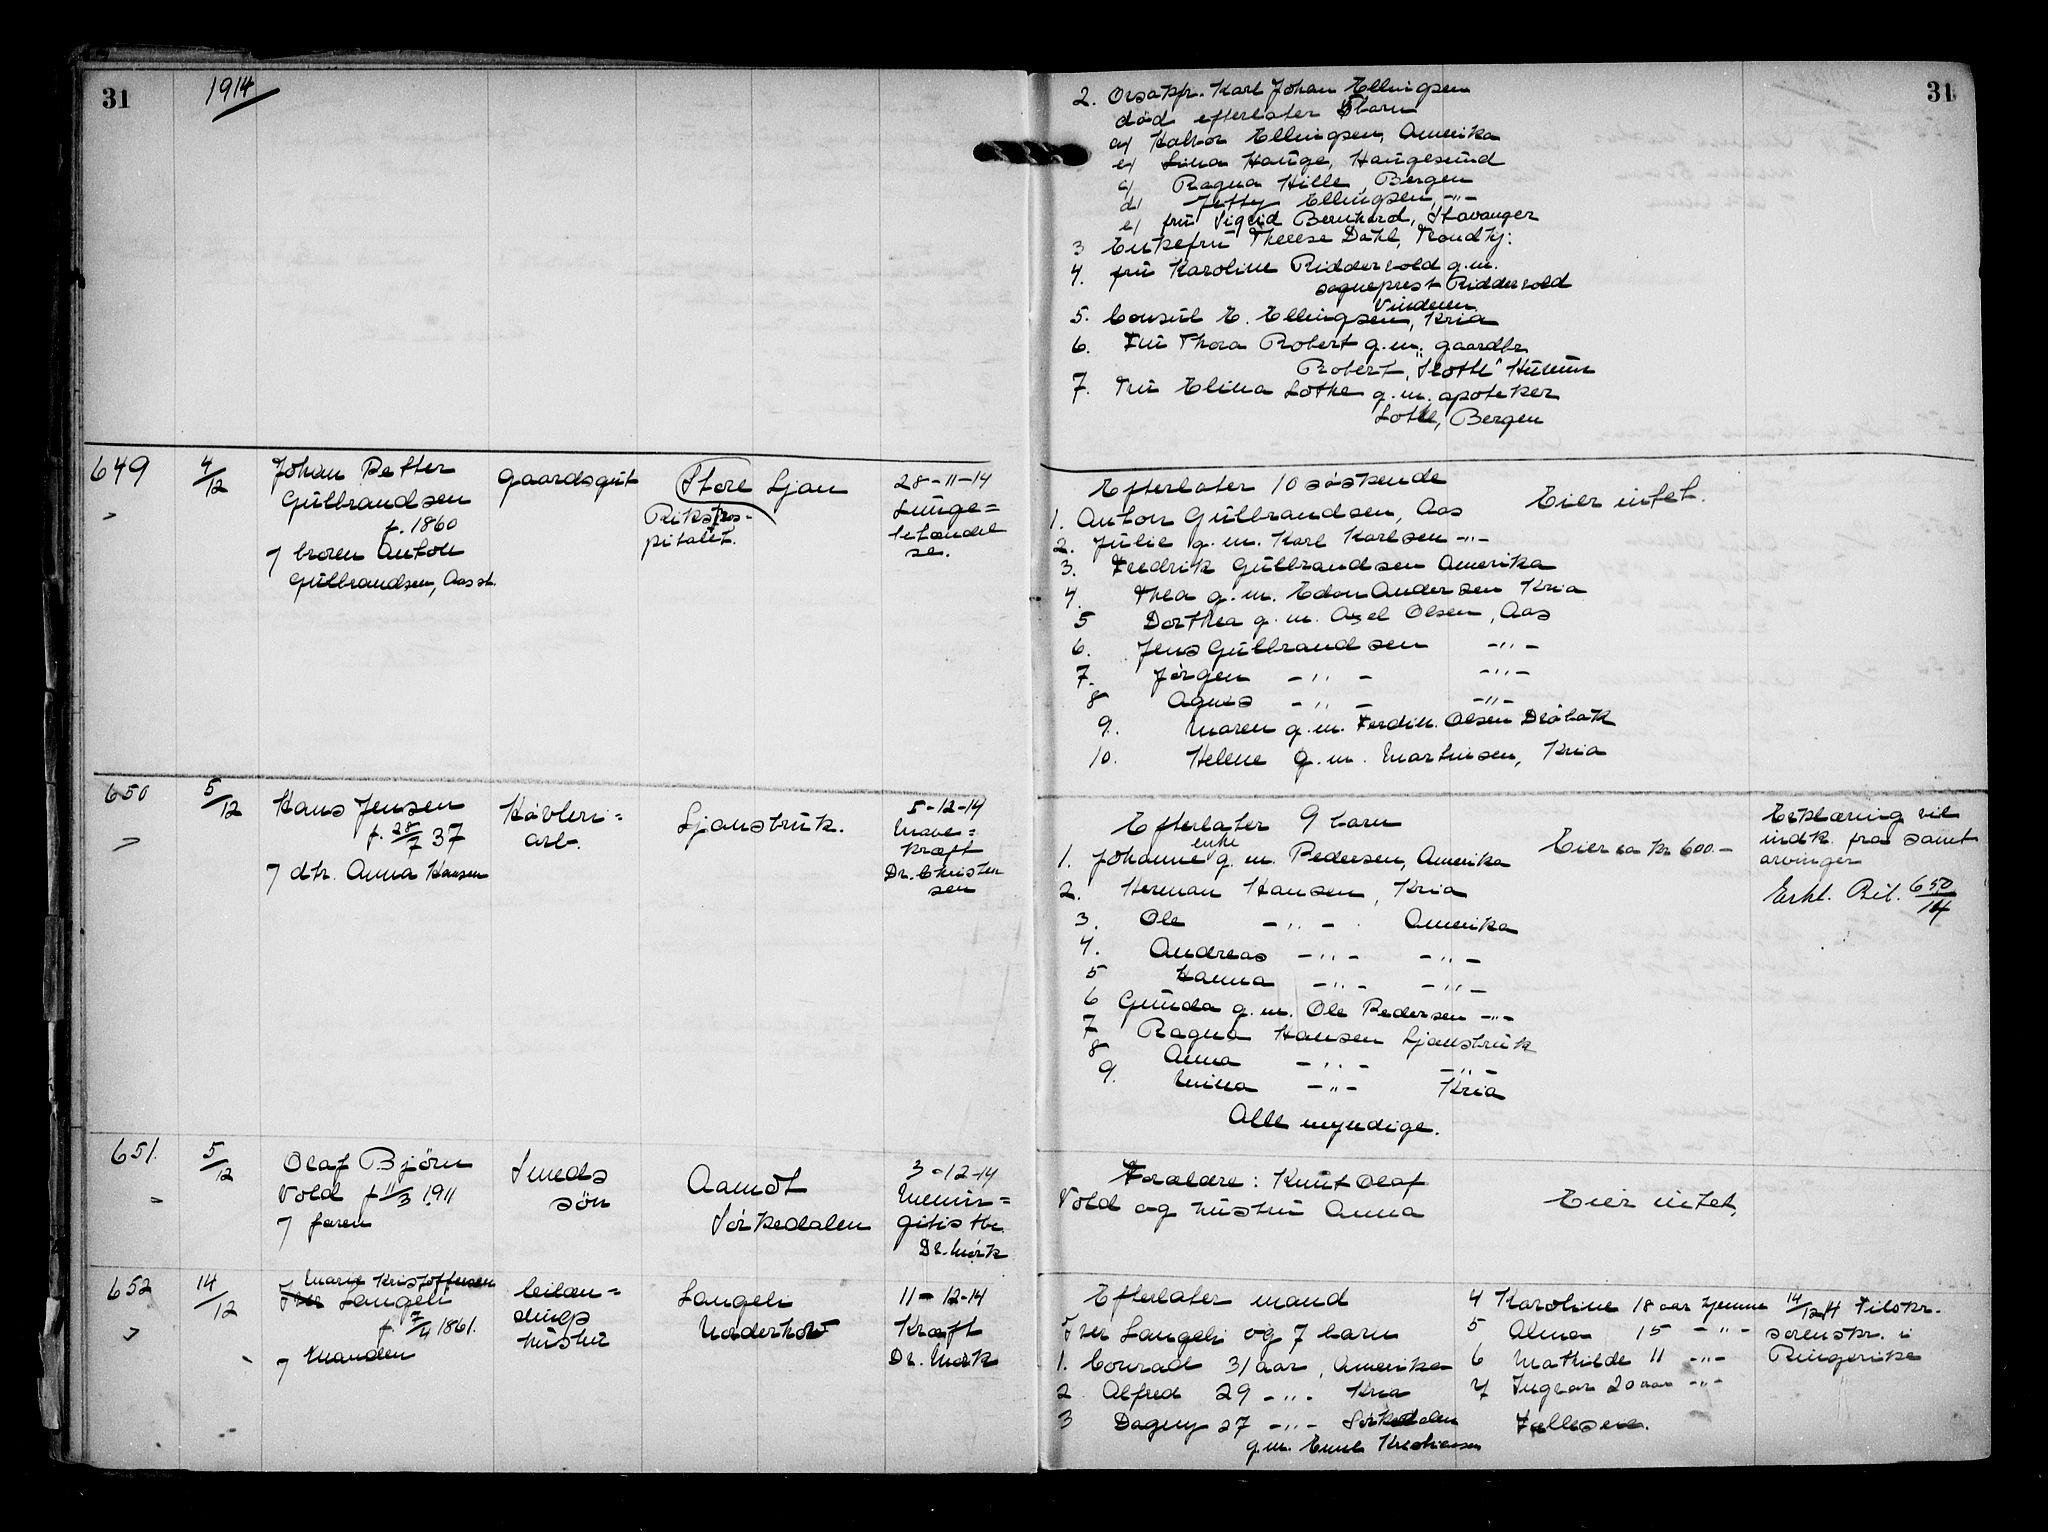 31
1914
31
2. Orsakfr. Karl Johan Ellingsen
død efterlater 5 barn
a) Halvor Ellingsen, Amerika
b) Lina Hauge, Haugesund
c) Ragna Hille, Bergen
d) Jetty Ellingsen -"-
e) fru Sigrid Bernhard, Stavanger
3 Enkefru Therese Dahl, Trondhj:
4. fru Karoline Riddervold g.m.
sogneprest Riddervold
Vinderen
5. Consul E. Ellingsen, Kria
6. Fru Thora Robert g.m. gaardbr.
Robert, "Slottl" Husum
7. Fru Elina Lothe g.m. apoteker
Lothe, Bergen
649 4/12 Johan Petter
Gulbrandsen
f. 1860
7 broren Anton
Gulbrandsen, Aas st.
gaardsgut
Store Ljan
Rikshos-
pitalet.
28-11-14
Lunge=
betændel
se.
Efterlater 10 søskende
Eier intet.
1. Anton Gulbrandsen, Aas
2. Julie g.m. Karl Karlsen -"-
3. Fredrik Gulbrandsen Amerika
4. Thea g.m. Edon Andersen Kria
5 Dorthea g.m. Axel Olsen, Aas
6. Jens Gulbrandsen -"-
7. Jørgen -"- -"-
8 Agnes -"- -"-
9. Maren g.m. Ferdin. Olsen Drøbak
10. Helene g.m. Martinsen, Kria
650 5/12 Hans Jensen
f. 28/7 37
7 dtr. Anna Hansen
Høvleri=
arb.
Ljanstruk.
5-12-14
Mave=
kræft
Dr. Christen
sen
Efterlater 9 barn
enke
1. Johanne g.m. Pedersen, Amerika
2. Herman Hansen, Kria
3. Ole -"- Amerika
4. Andreas -"- -"-
5 Hanna -"- -"-
6 Gunda g.m. Ole Pedersen -"-
7 Ragna Hansen Ljanstruk
8 Anna -"- -"-
9. Mina -"- Kria
Alle myndige.
Eier ca kr 600.-
Erklæring vil
indk. fra samt
arvinger
Erkl. Bil. 650/14
651. 5/12 Olaf Bjørn
Vold f 11/3 1911
7 faren
Smeds
søn
Aamot
Sørkedalen
3-12-14
Menin=
gitis tbc
Dr. Mørk
Forældre: Knut Olaf
Vold og hustru Anna
Eier intet,
652 14/12 Marie Kristoffersen
Iver Langeli
f. 7/4 1861.
7 Manden
leilæn=
dings
hustru
Langeli
Norderhov
11-12-14
Kræft
Dr. Mørk
Efterlater mand
Iver Langeli og 7 barn
1. Conrad 31 aar, Amerika
2. Alfred 29 -"- Kria
3 Dagny 27 -"- Sørkedalen
g.m. Emil Kristiansen
4 Karoline 18 aar hjemme
5 Alma 15 -"-
6 Mathilde 11 -"-
7 Ingvar 20 aar -"-
Fælleseie.
14/12 14 Tilskr.
sorenskr. i
Ringerike